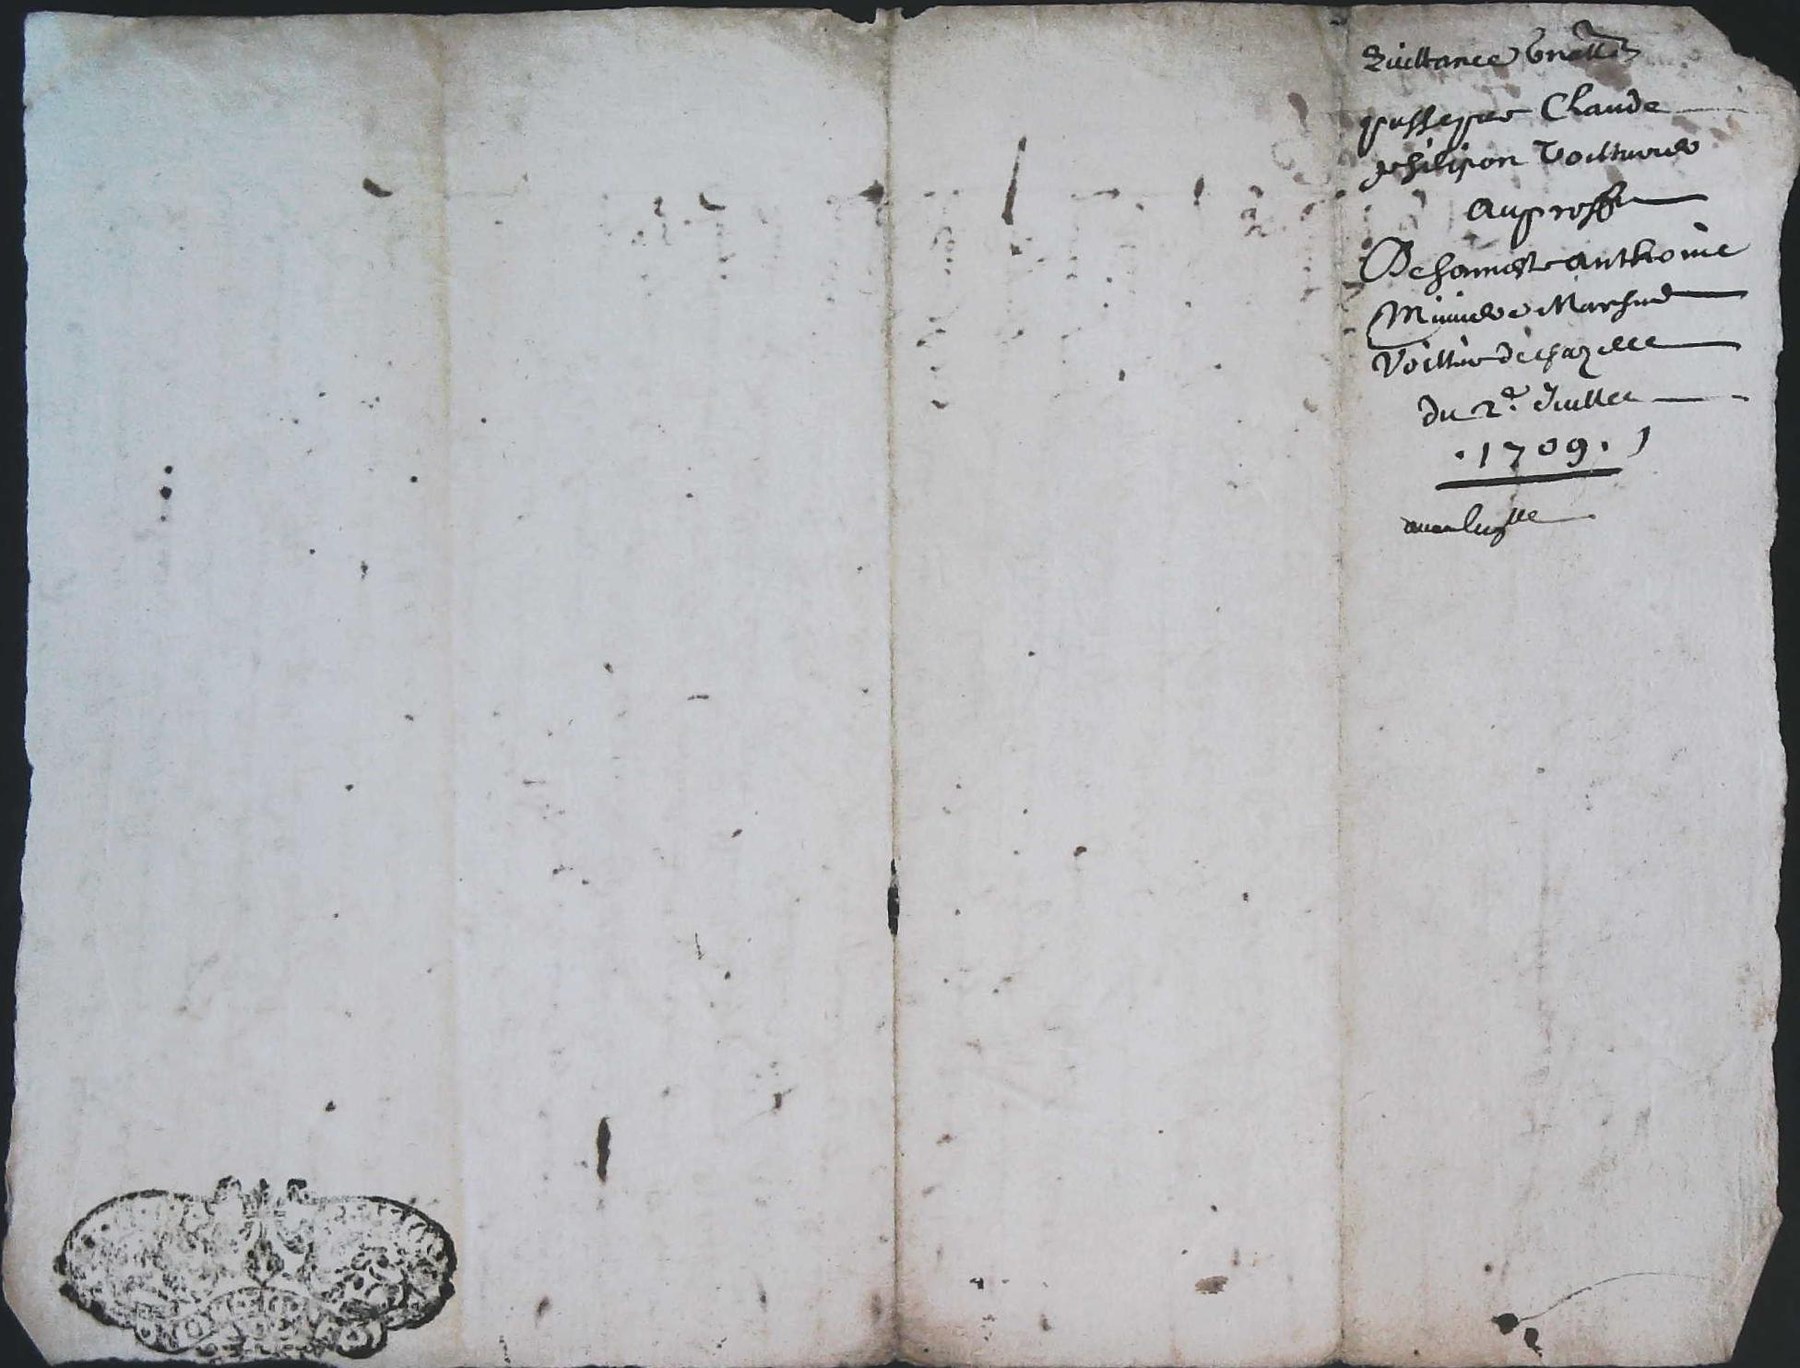 Quittance gnalle
passe par Claude
philipon Voiturier
Au proffit
De honneste anthoine
Miniere Marchand
Voiturier de chazelle
du 2e. Juillet
.1709.